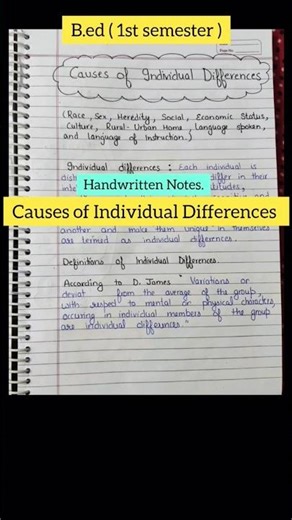 B.ed ( 1st semester )
Causes of Individual Differences
(Race, Sex, Heredity, Social, Economic Status,
Culture, Rural-Urban Home, Language spoken,
and Language of Instruction.)
Individual differences : Each individual is
differ in their
Handwritten Notes.
Causes of Individual Differences
another and make them unique in themselves
are termed as individual differences.
Definitions of Individual Differences.
According to D. James " Variations or
deviat from the average of the group,
with respect to mental or physical characters,
occuring in individual members of the group
are individual differences."